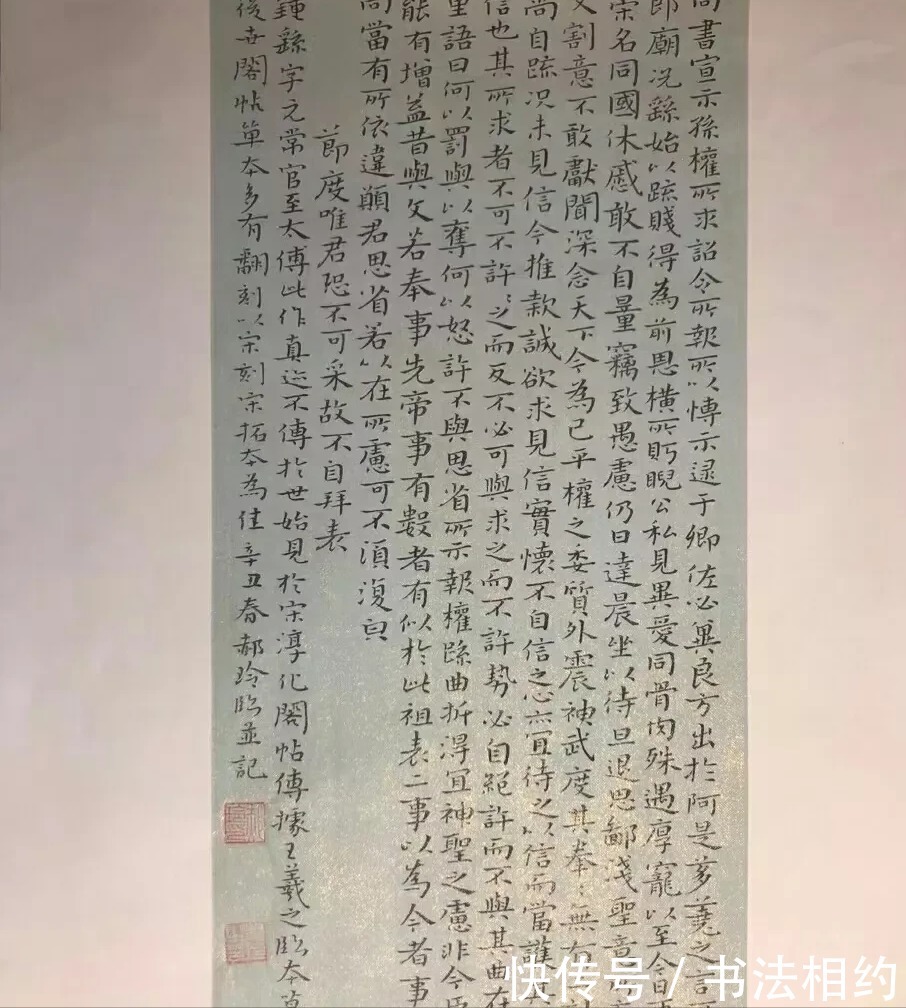 尚書宣示孫權所求詔令所報所以博示逮于卿佐必冀良方出於阿是芻蕘之言可
郎廟況繇始以疏賤得為前恩橫所眄睨公私見異愛同骨肉殊遇厚寵以至今日再
榮名同國休慼敢不自量竊致愚慮仍日達晨坐以待旦退思鄙淺聖意所
又割意不敢獻聞深念天下今為已平權之委質外震神武度其拳〻無有
尚自疏況未見信今推款誠欲求見信實懷不自信之心亦宜待之以信而當護其
信也其所求者不可不許〻之而反不必可與求之而不許勢必自絕許而不與其曲在
里語曰何以罰與以奪何以怒許不與思省所示報權疏曲折得宜神聖之慮非今臣
能有增益昔與文若奉事先帝事有數者有似於此粗表二事以為今者事
尚當有所依違顛君思省若以在所慮可不須復皃
節度唯君恐不可采故不自拜表
鍾繇字元常官至太傅此作真迹不傳於世始見於宋淳化閣帖傳據王羲之臨本
後世閣帖單本多有翻刻以宋刻宋拓本為佳辛丑春郝玲臨並記
快传号 / 书法相约